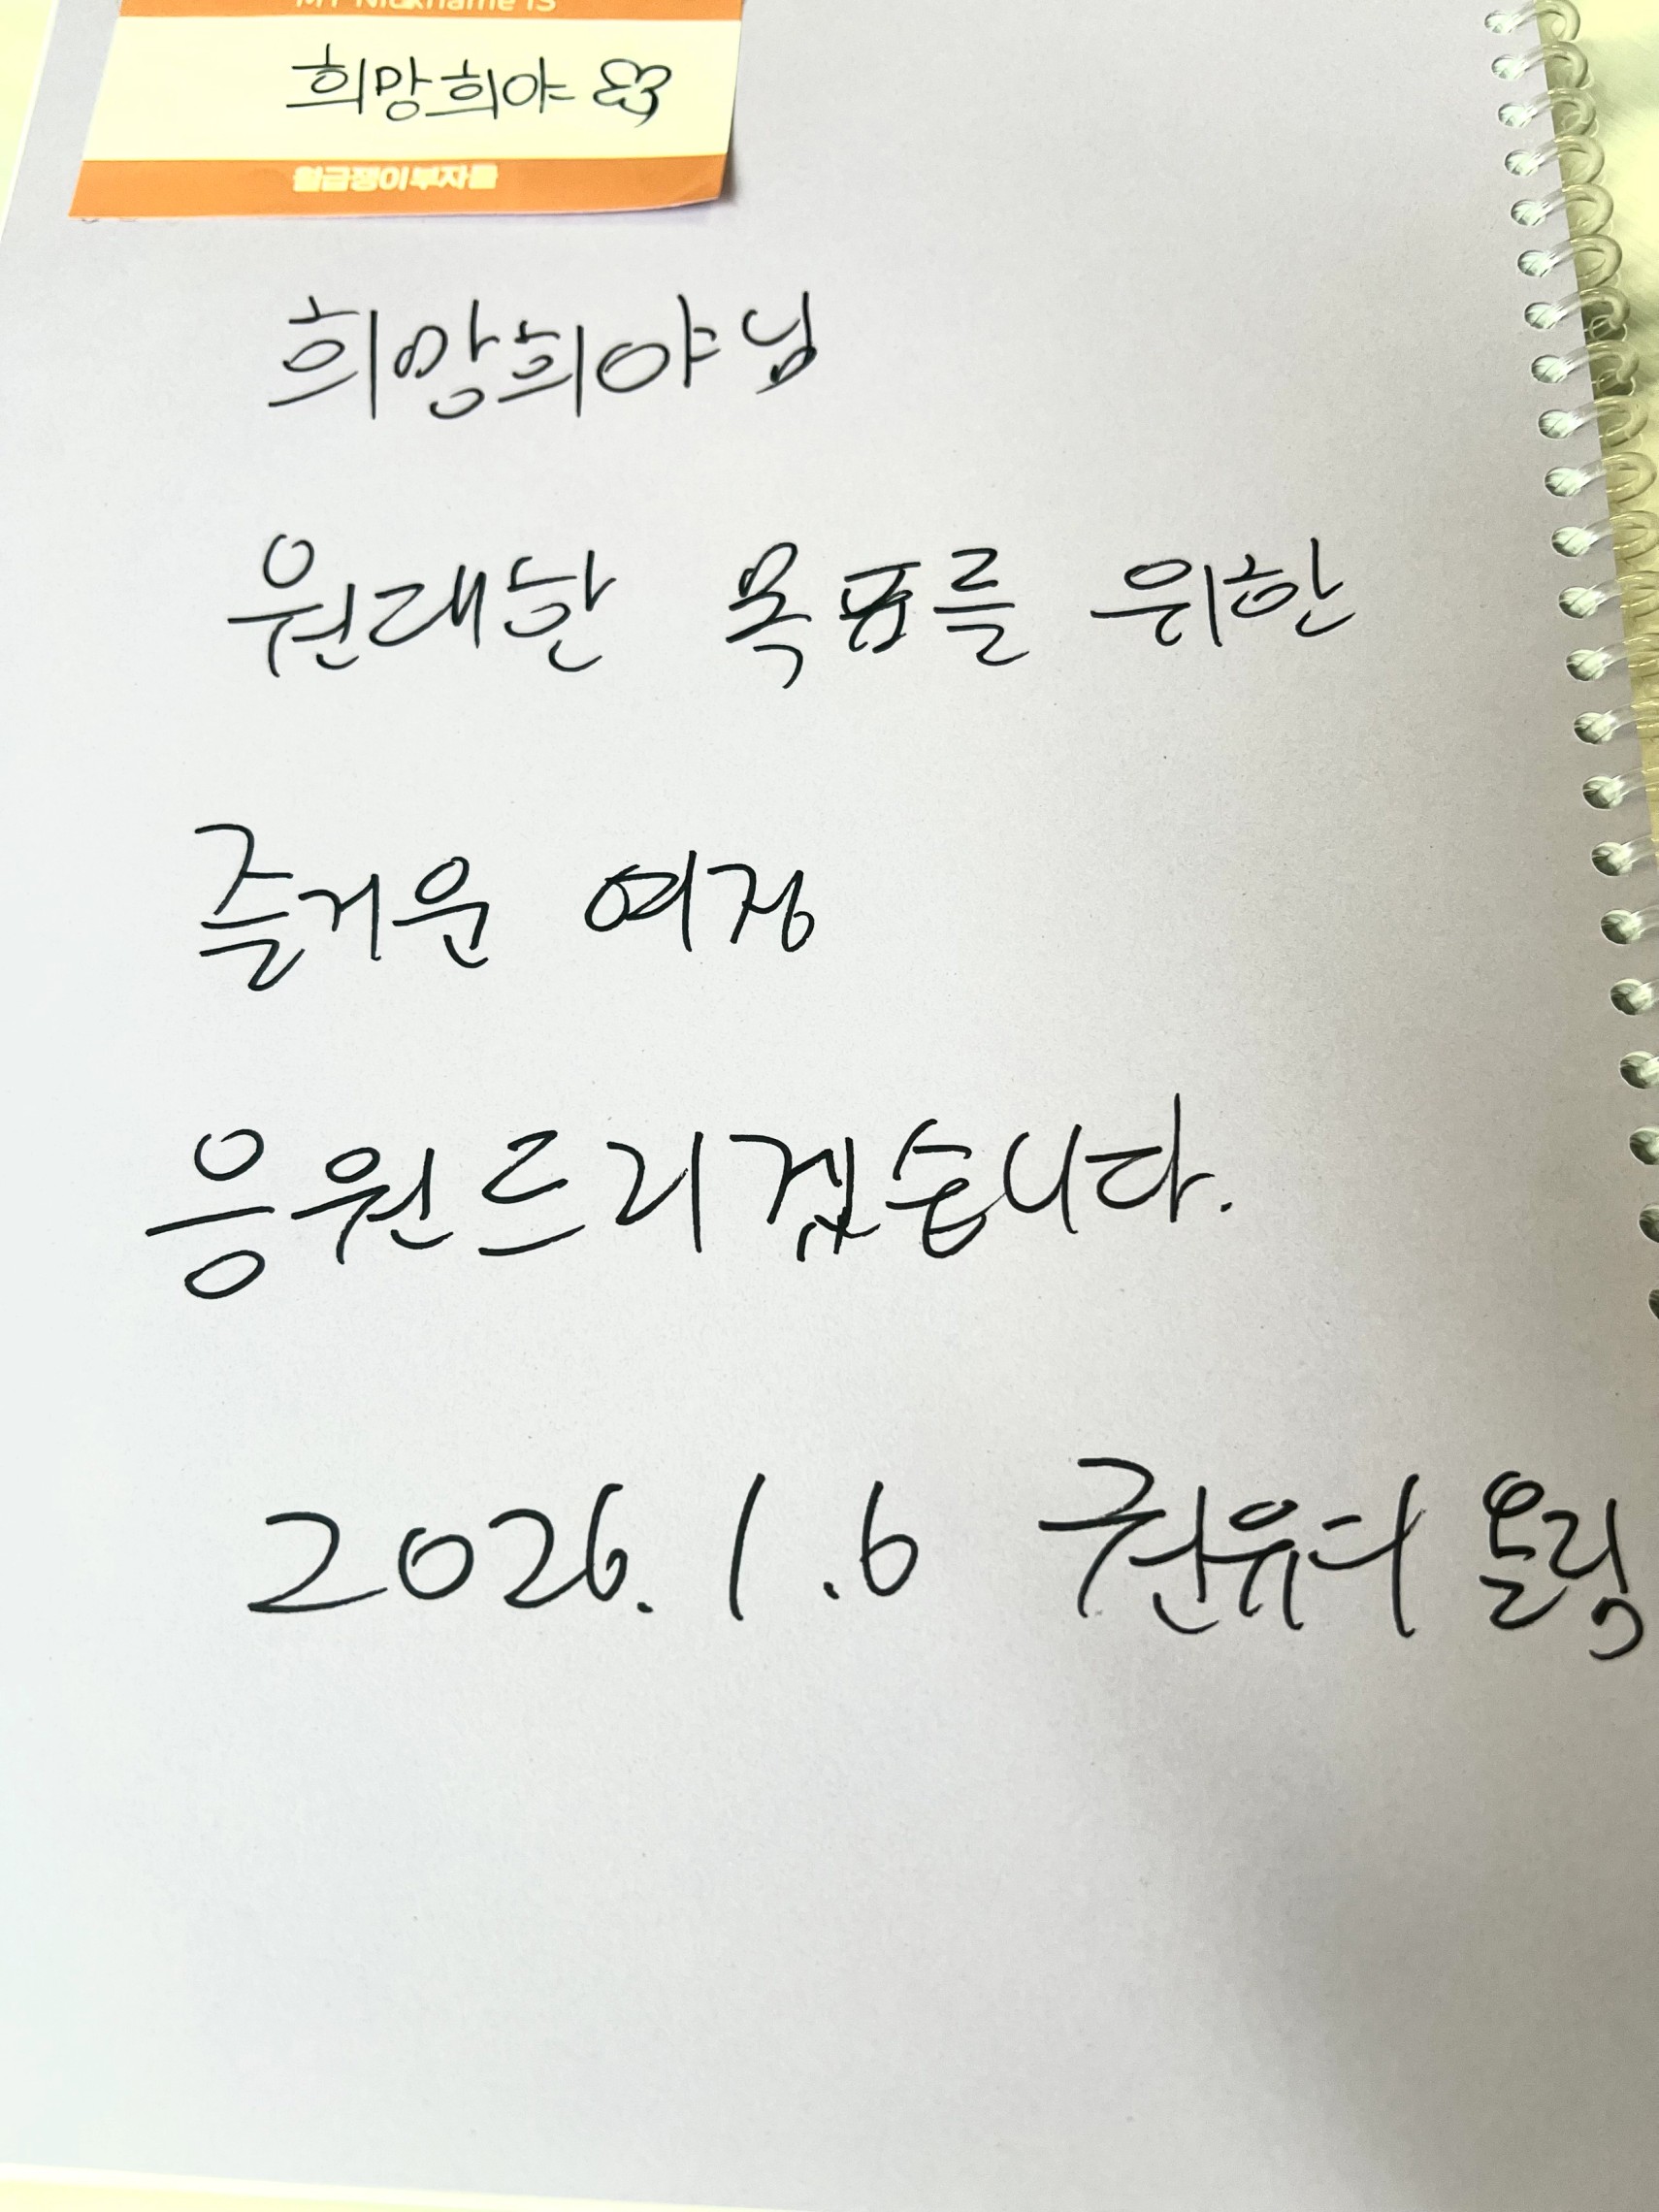 MY Nickname IS
희망희야
월급쟁이부자들
희망희야님
원대한 목표를 위한
즐거운 여정
응원드리겠습니다.
2026. 1. 6 권유디 올림